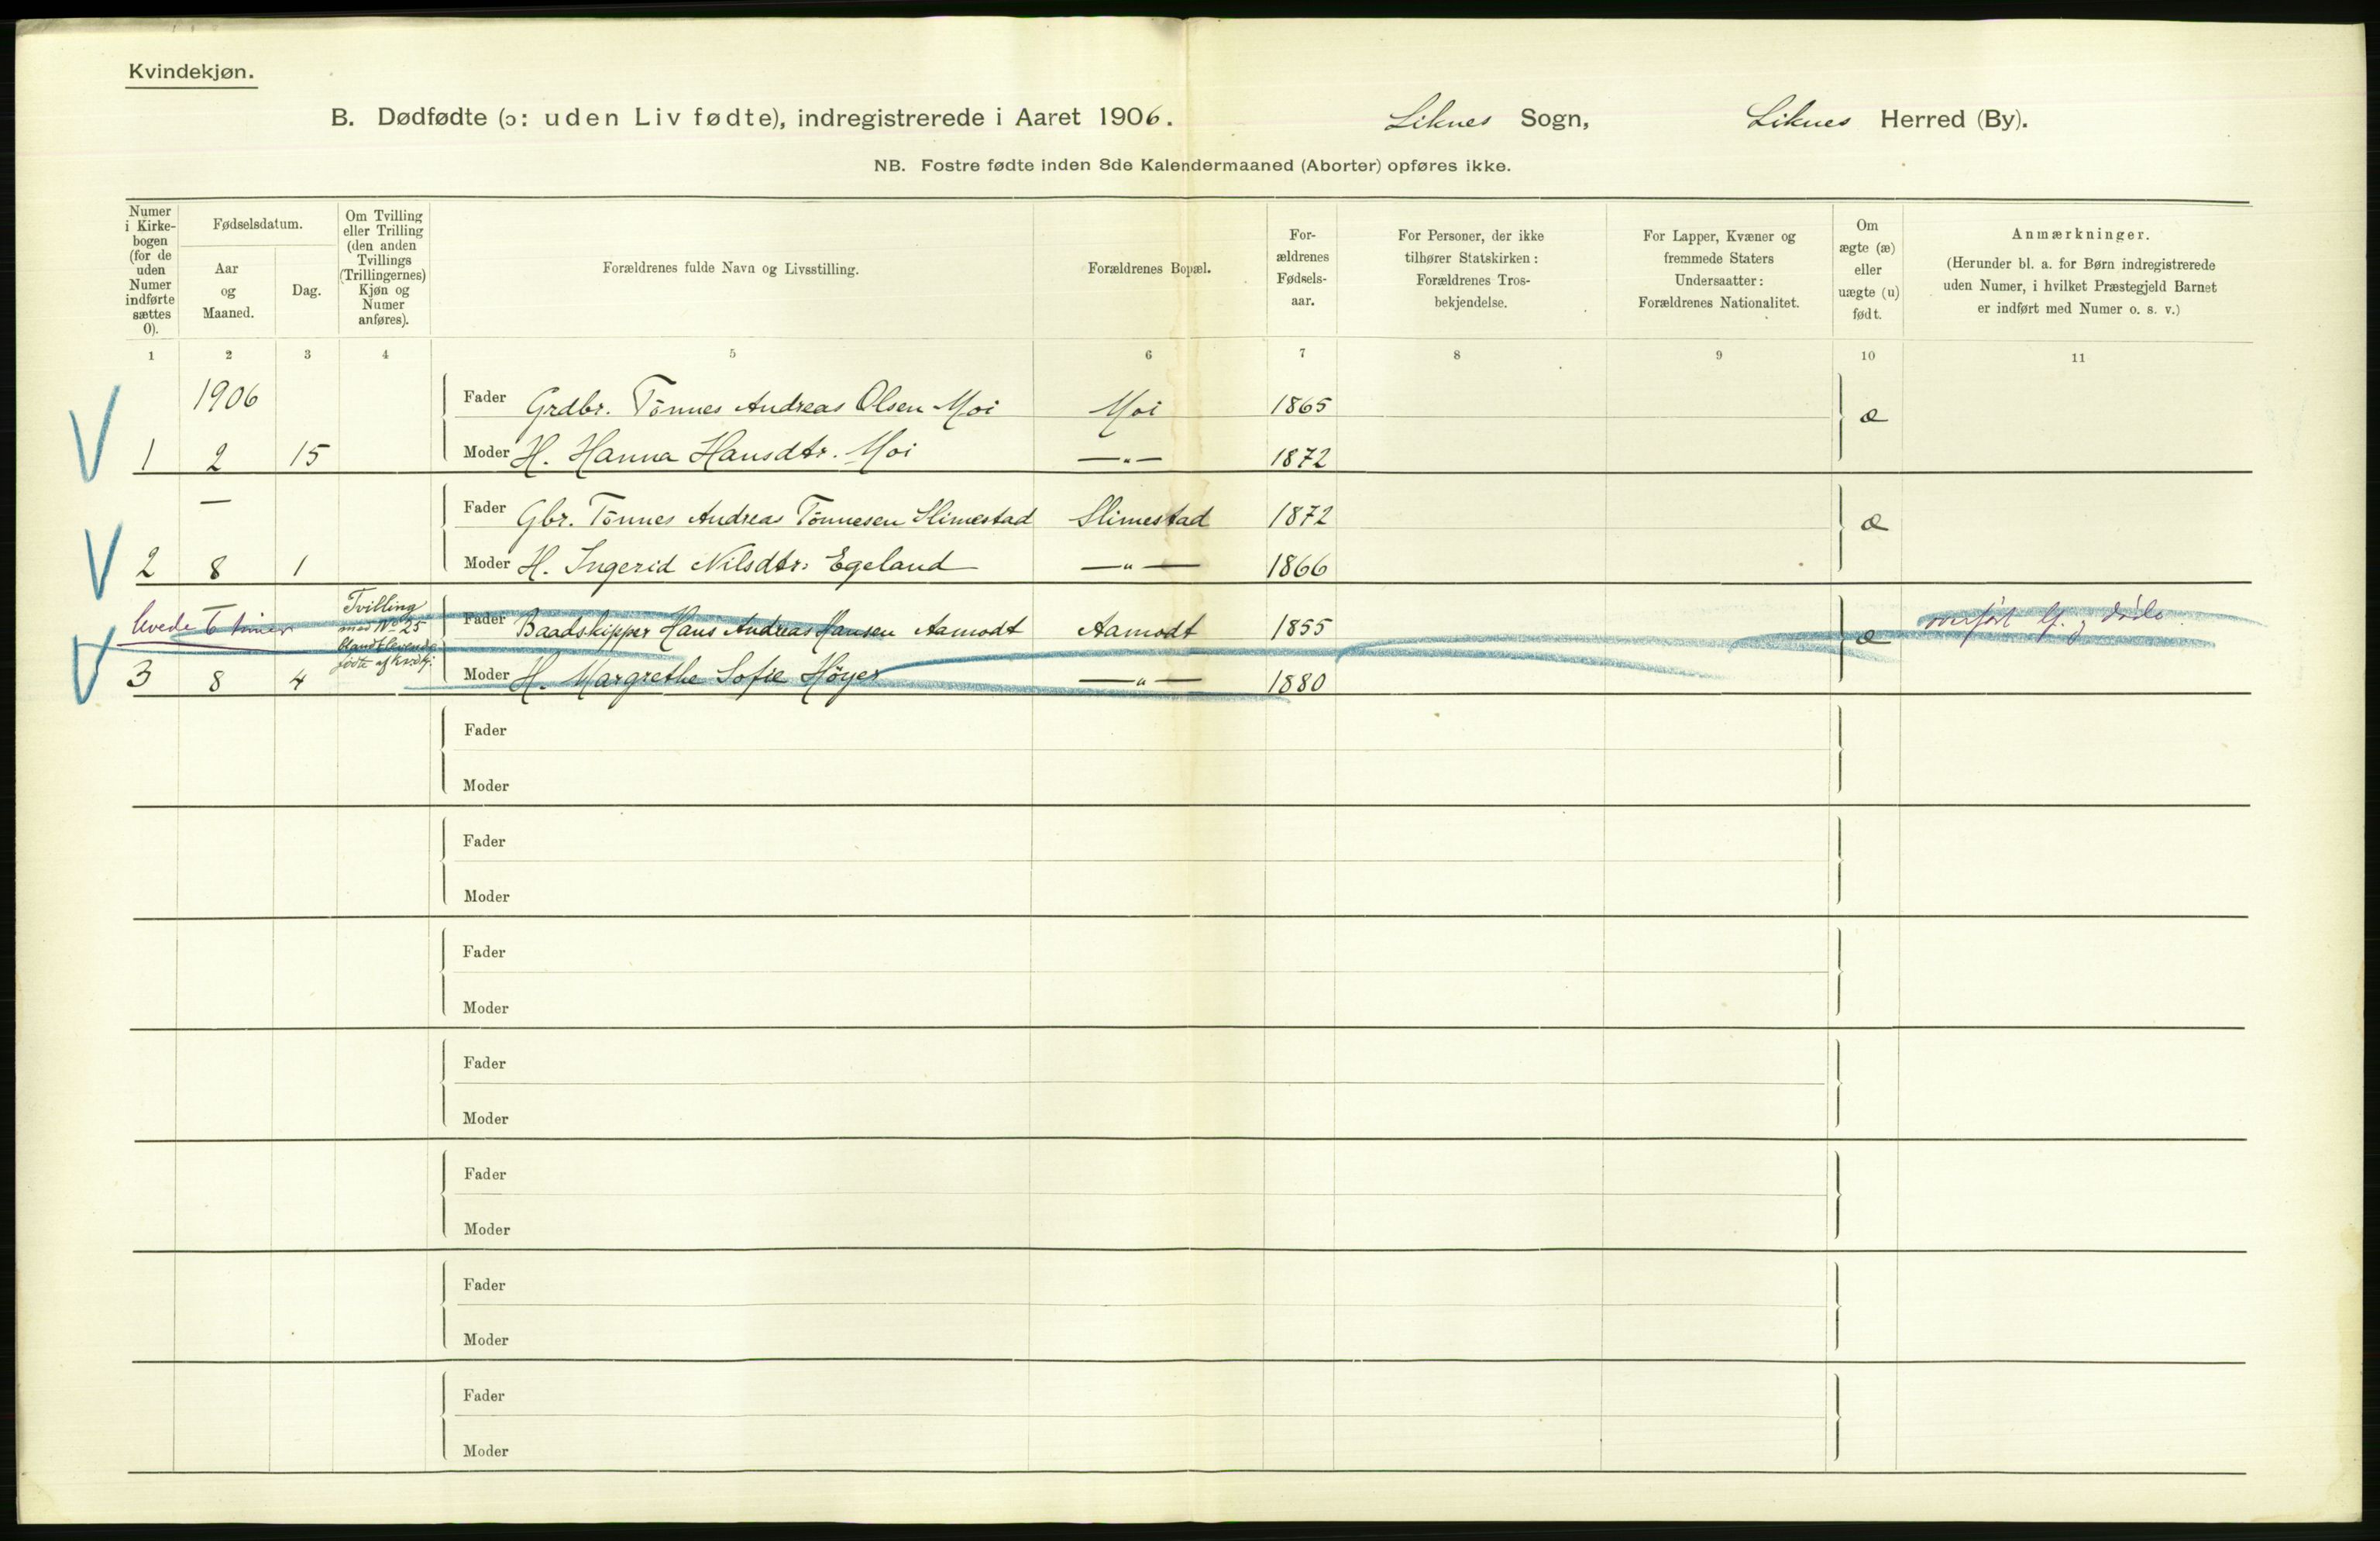 Kvindekjøn.
B. Dødfødte (ɔ: uden Liv fødte), indregistrerede i Aaret 1906. Liknes Sogn, Liknes Herred (By).
NB. Fostre fødte inden 8de Kalendermaaned (Aborter) opføres ikke.
Numer
i Kirke-
bogen
(for de
uden
Numer
indførte
sættes
0).
Fødselsdatum.
Aar
og
Maaned.
Dag.
Om Tvilling
eller Trilling
(den anden
Tvillings
(Trillingernes)
Kjøn og
Numer
anføres).
Forældrenes fulde Navn og Livsstilling.
Forældrenes Bopæl.
For-
ældrenes
Fødsels-
aar.
For Personer, der ikke
tilhører Statskirken:
Forældrenes Tros-
bekjendelse.
For Lapper, Kvæner og
fremmede Staters
Undersaatter:
Forældrenes Nationalitet.
Om
ægte (æ)
eller
uægte (u)
født.
Anmærkninger.
(Herunder bl. a. for Børn indregistrerede
uden Numer, i hvilket Præstegjeld Barnet
er indført med Numer o. s. v.)
1 2 3 4 5 6 7 8 9 10 11
1906 Fader Grdbr. Tönnes Andreas Olsen Moi Moi 1865 æ
1 2 15 Moder H. Hanna Hansdtr. Moi —„— 1872
— Fader Gbr. Tönnes Andreas Tönnesen Slimestad Slimestad 1872 æ
2 8 1 Moder H. Ingerid Nilsdtr. Egeland —„— 1866
levede 6 timer
Tvilling
med No 25
blandt levende
fødte af kvidkj.
Fader Baadskipper Hans Andreas Hansen Aamodt Aamodt 1855 æ overført lf. og døde
3 8 4 Moder H. Margrethe Sofie Höyer —„— 1880
Fader
Moder
Fader
Moder
Fader
Moder
Fader
Moder
Fader
Moder
Fader
Moder
Fader
Moder